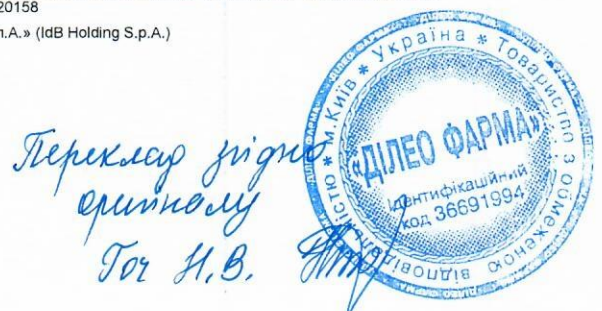 20158
п.А.» (IdB Holding S.p.A.)
Переклад згідно
оригіналу
Гоч Н.В.
* м.Київ * Україна * Товариство з обмеженою відповідальністю
«ДІЛЕО ФАРМА»
Ідентифікаційний
код 36691994